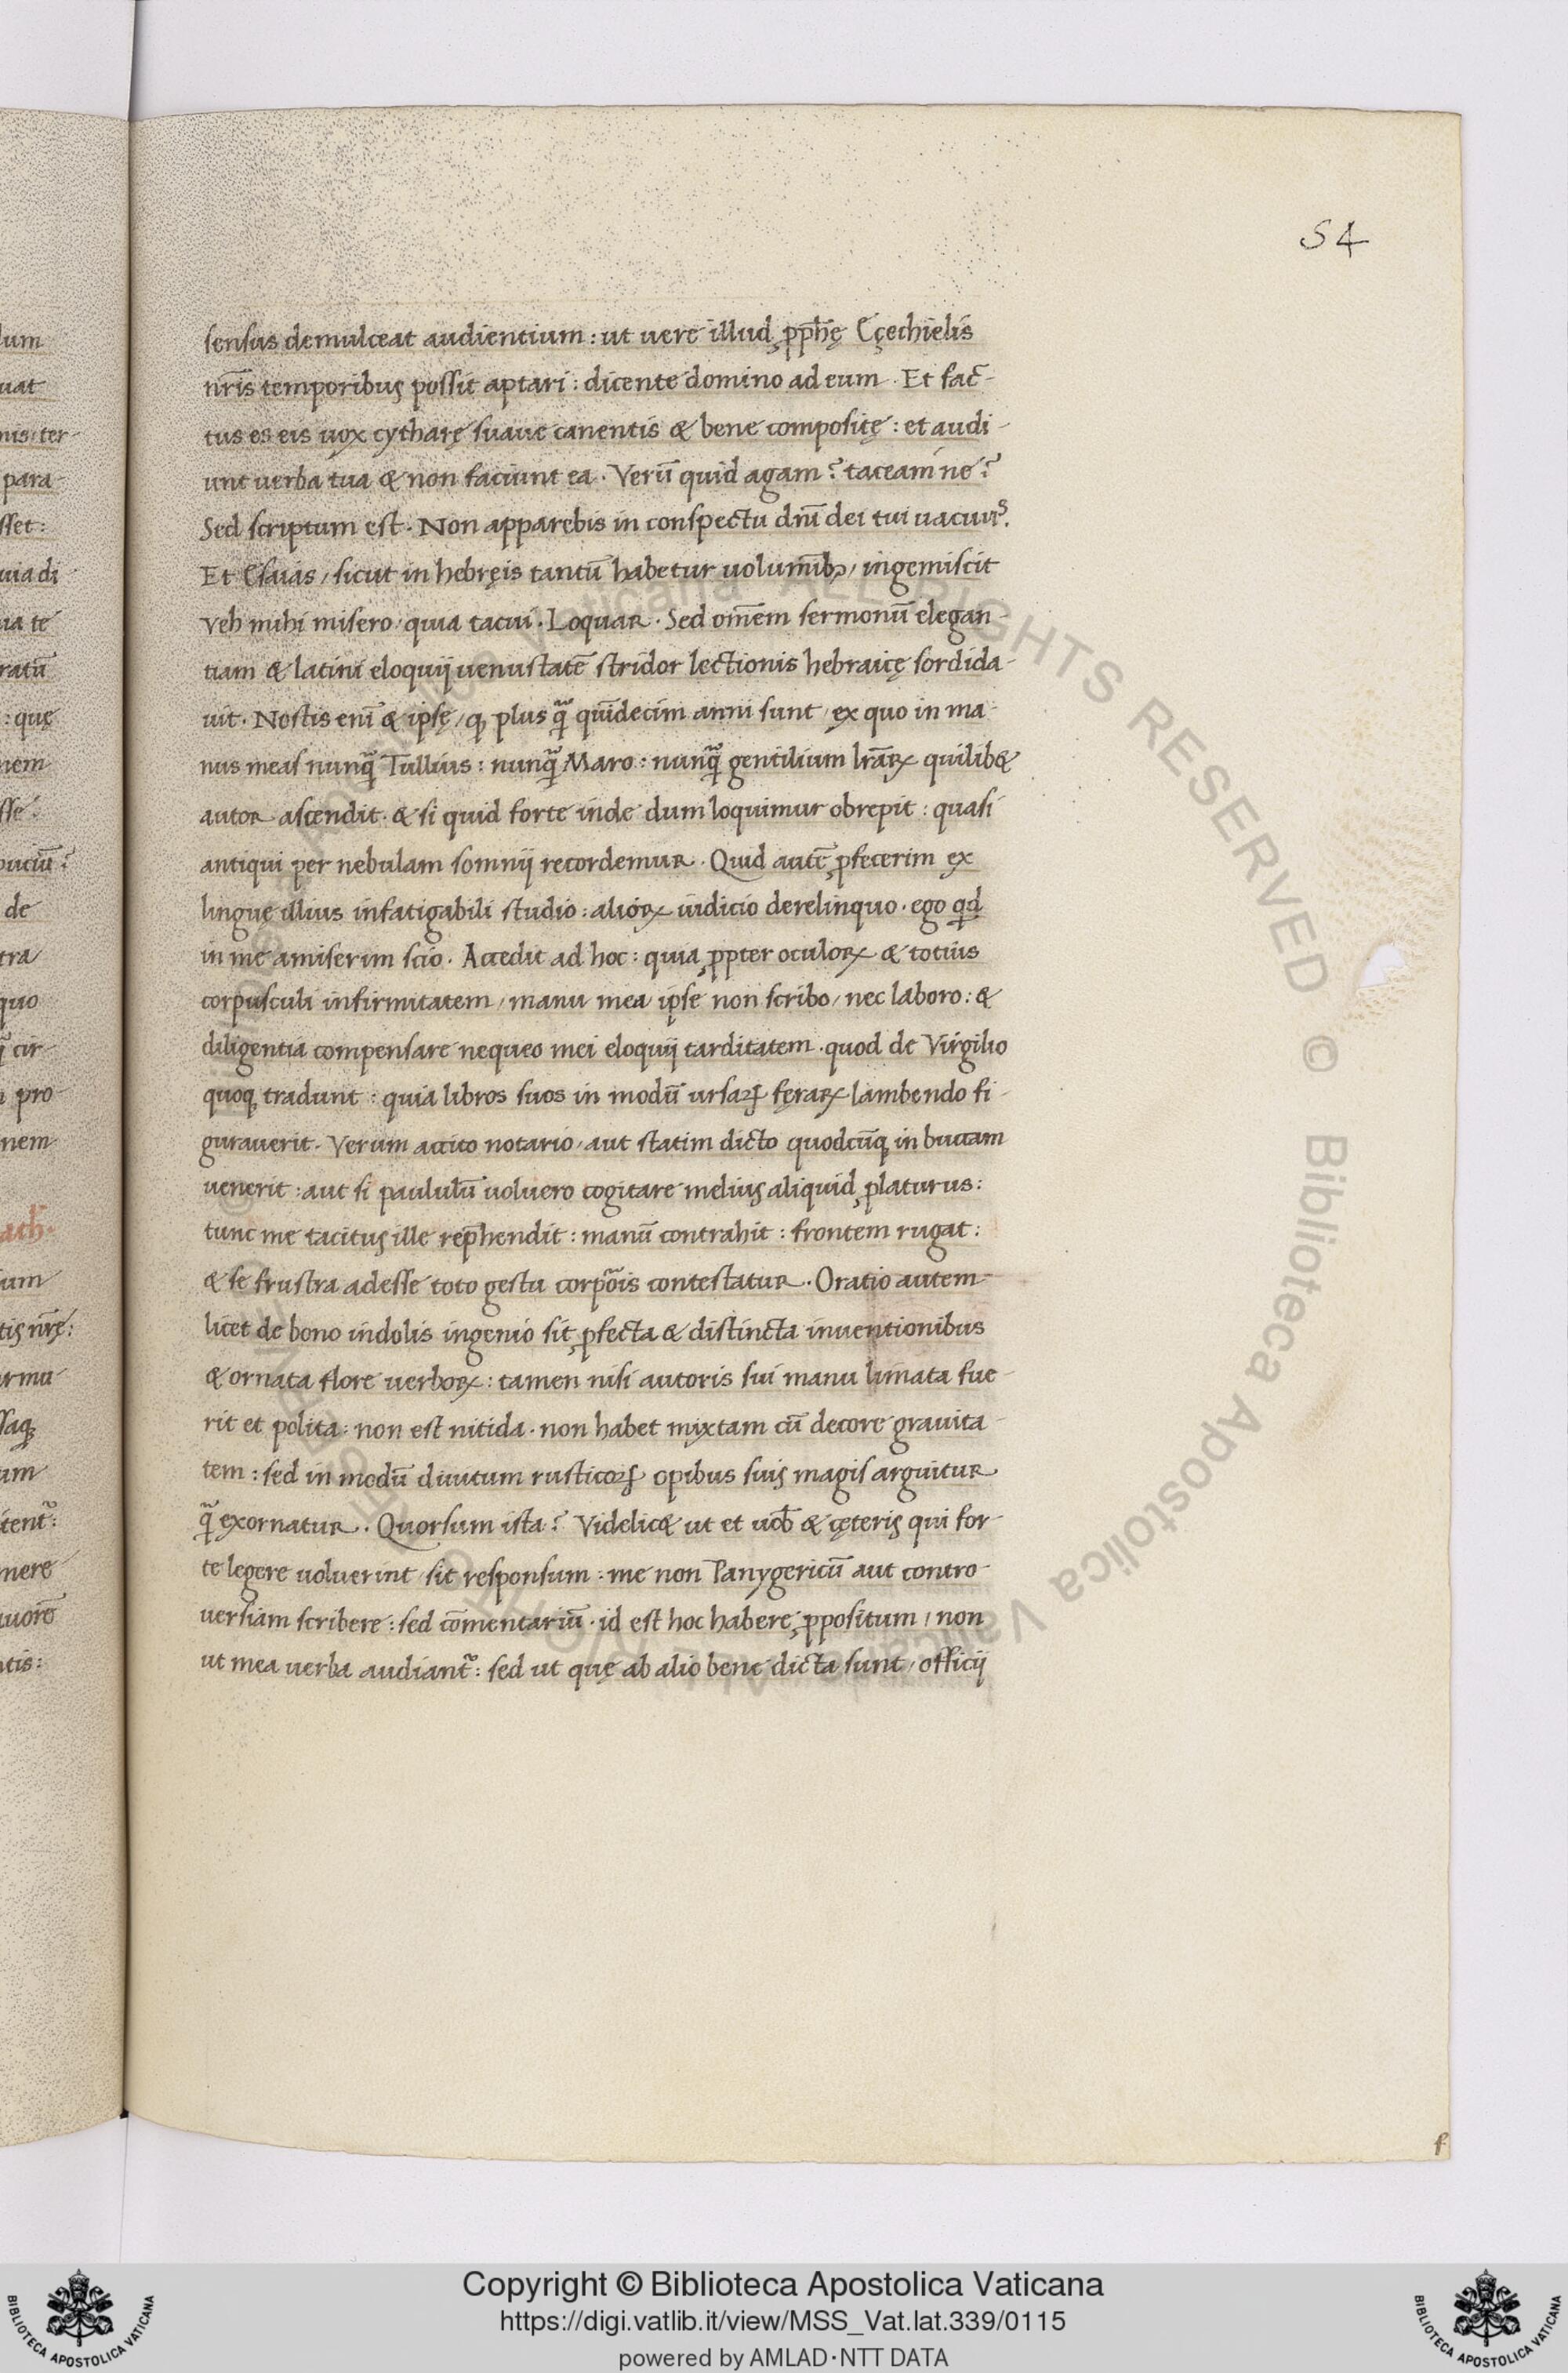 54
sensus demulceat audientium : ut uere illud ꝓph̄ę Eçechielis
nr̄is temporibus possit aptari : dicente domino ad eum . Et fac̄-
tus es eis uox cytharę suaue canentis & bene compositę : et audi-
unt uerba tua & non faciunt ea . Verū quid agam ? taceam ne ?
Sed scriptum est . Non apparebis in conspectu dn̄i dei tui uacuus .
Et Esaias / sicut in hebręis tantū habetur uolumīb; / ingemiscit
veh mihi misero / quia tacui . Loquar . Sed om̄em sermonū elegan-
tiam & latini eloquij uenustatē stridor lectionis hebraicę sordida-
uit . Nostis enī & ipsę / ꝙ plus qͣ̄ quīdecim anni sunt / ex quo in ma-
nus meas nunqͣ̄ Tullius : nunqͣ̄ Maro : nunqͣ̄ gentilium lr̄aꝝ quilib&
autor ascendit . & si quid forte inde dum loquimur obrepit : quasi
antiqui per nebulam somnij recordemur . Quid autē ꝓfecerim ex
lingue illius infatigabili studio : alioꝝ iudicio derelinquo . ego qd̄
in me amiserim scio . Accedit ad hoc : quia ꝓpter oculoꝝ & totius
corpusculi infirmitatem / manu mea ipse non scribo / nec laboro : &
diligentia compensare nequeo mei eloquij tarditatem . quod de Virgilio
quoq; tradunt : quia libros suos in modū ursaꝝ fęraꝝ lambendo fi-
gurauerit . Verum accito notario / aut statim dicto quodcūq; in buccam
uenerit : aut si paululū uoluero cogitare melius aliquid ꝓlaturus :
tunc me tacitus ille rep̄hendit : manū contrahit : frontem rugat :
& se frustra adesse toto gestu corpois contestatur . Oratio autem
licet de bono indolis ingenio sit ꝓfecta & distincta inuentionibus
& ornata flore uerboꝝ : tamen nisi autoris sui manu limata fue-
rit et polita : non est nitida . non habet mixtam cū decore grauita-
tem : sed in modū diuitum rusticoꝝ opibus suis magis arguitur
qͣ̄ exornatur . Quorsum ista ? Videlic& ut et uob̄ & cęteris qui for-
te legere uoluerint / sit responsum : me non Panygericū aut contro-
uersiam scribere : sed cōmentariū . id est hoc habere ꝓpositum / non
ut mea uerba audiant᷑ : sed ut quę ab alio bene dicta sunt / officij
f
© Biblioteca Apostolica Vaticana ALL RIGHTS RESERVED
Copyright © Biblioteca Apostolica Vaticana
https://digi.vatlib.it/view/MSS_Vat.lat.339/0115
powered by AMLAD·NTT DATA
BIBLIOTECA APOSTOLICA VATICANA
BIBLIOTECA APOSTOLICA VATICANA